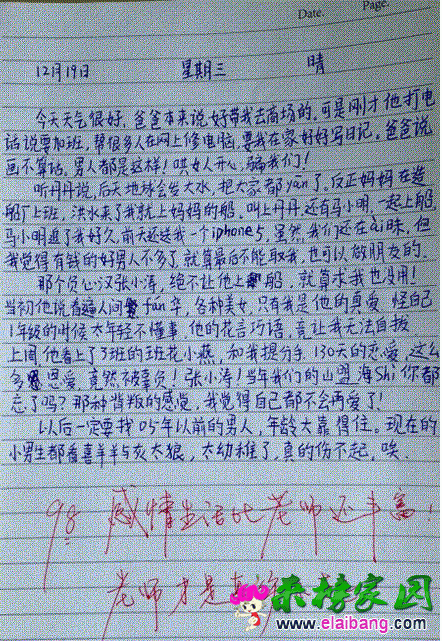 Date.
Page.
12月19日 星期三 晴
今天天气很好，爸爸本来说好带我去商场的，可是刚才他打电
话说要加班，帮很多人在网上修电脑，要我在家好好写日记。爸爸说
画不算话，男人都是这样！哄女人开心，骗我们！
听丹丹说，后天地球会发大水，把大家都yān了，反正妈妈在造
船厂上班，洪水来了我就上妈妈的船。叫上丹丹，还有马小明，一起上船，
马小明追了我好久，前天还送我一个iphone5，虽然我们还在ài昧，但
我觉得有钱的好男人不多了，就算最后不能取我，也可以做朋友的。
那个负心汉张小涛，绝不让他上船，就算求我也没用！
当初他说看遍人间fán华，各种美女，只有我是他的真爱，怪自己
1年级的时候太年轻不懂事，他的花言巧语，竟让我无法自拔
上周他看上了3班的班花小燕，和我提分手，130天的恋爱，这么
多恩爱，竟然被辜负！张小涛！当年我们的山盟海Shi你都
忘了吗？那种背叛的感觉，我觉得自己都不会再爱了！
以后一定要找05年以前的男人，年龄大靠得住。现在的
小男生都看喜羊羊与灰太狼，太幼稚了，真的伤不起，唉。
98 感情生活比老师还丰富！
老师才是真
来榜家园
www.elaibang.com